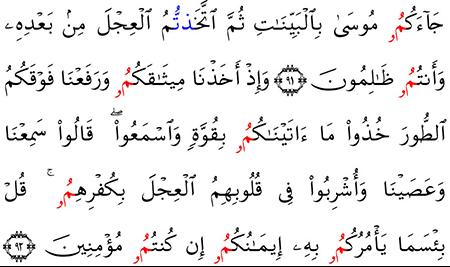 جَآءَكُمُۥ مُوسَىٰ بِالْبَيِّنَٰتِ ثُمَّ اَتَّخَذتُّمُ الْعِجْلَ مِنۢ بَعْدِهِۦ
وَأَنتُمُۥ ظَٰلِمُونَ ۝٩١ وَإِذْ أَخَذْنَا مِيثَٰقَكُمُۥ وَرَفَعْنَا فَوْقَكُمُ
الطُّورَ خُذُواْ مَا ءَاتَيْنَٰكُمُۥ بِقُوَّةٍ وَاسْمَعُواْ ۖ قَالُواْ سَمِعْنَا
وَعَصَيْنَا وَأُشْرِبُواْ فِى قُلُوبِهِمُ الْعِجْلَ بِكُفْرِهِمُۥ ۚ قُلْ
بِئْسَمَا يَأْمُرُكُمُۥ بِهِۦ إِيمَٰنُكُمُۥ إِن كُنتُمُۥ مُؤْمِنِينَ ۝٩٢